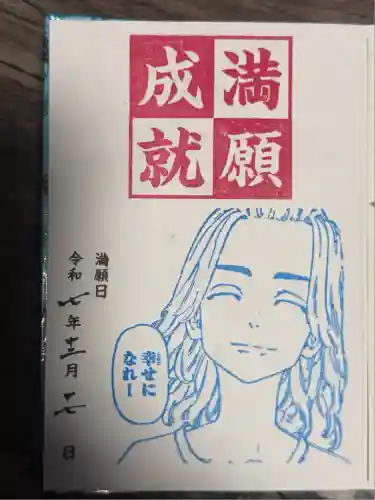 満願
成就
満願日
令和七年十二月十七日
幸せに
なれー